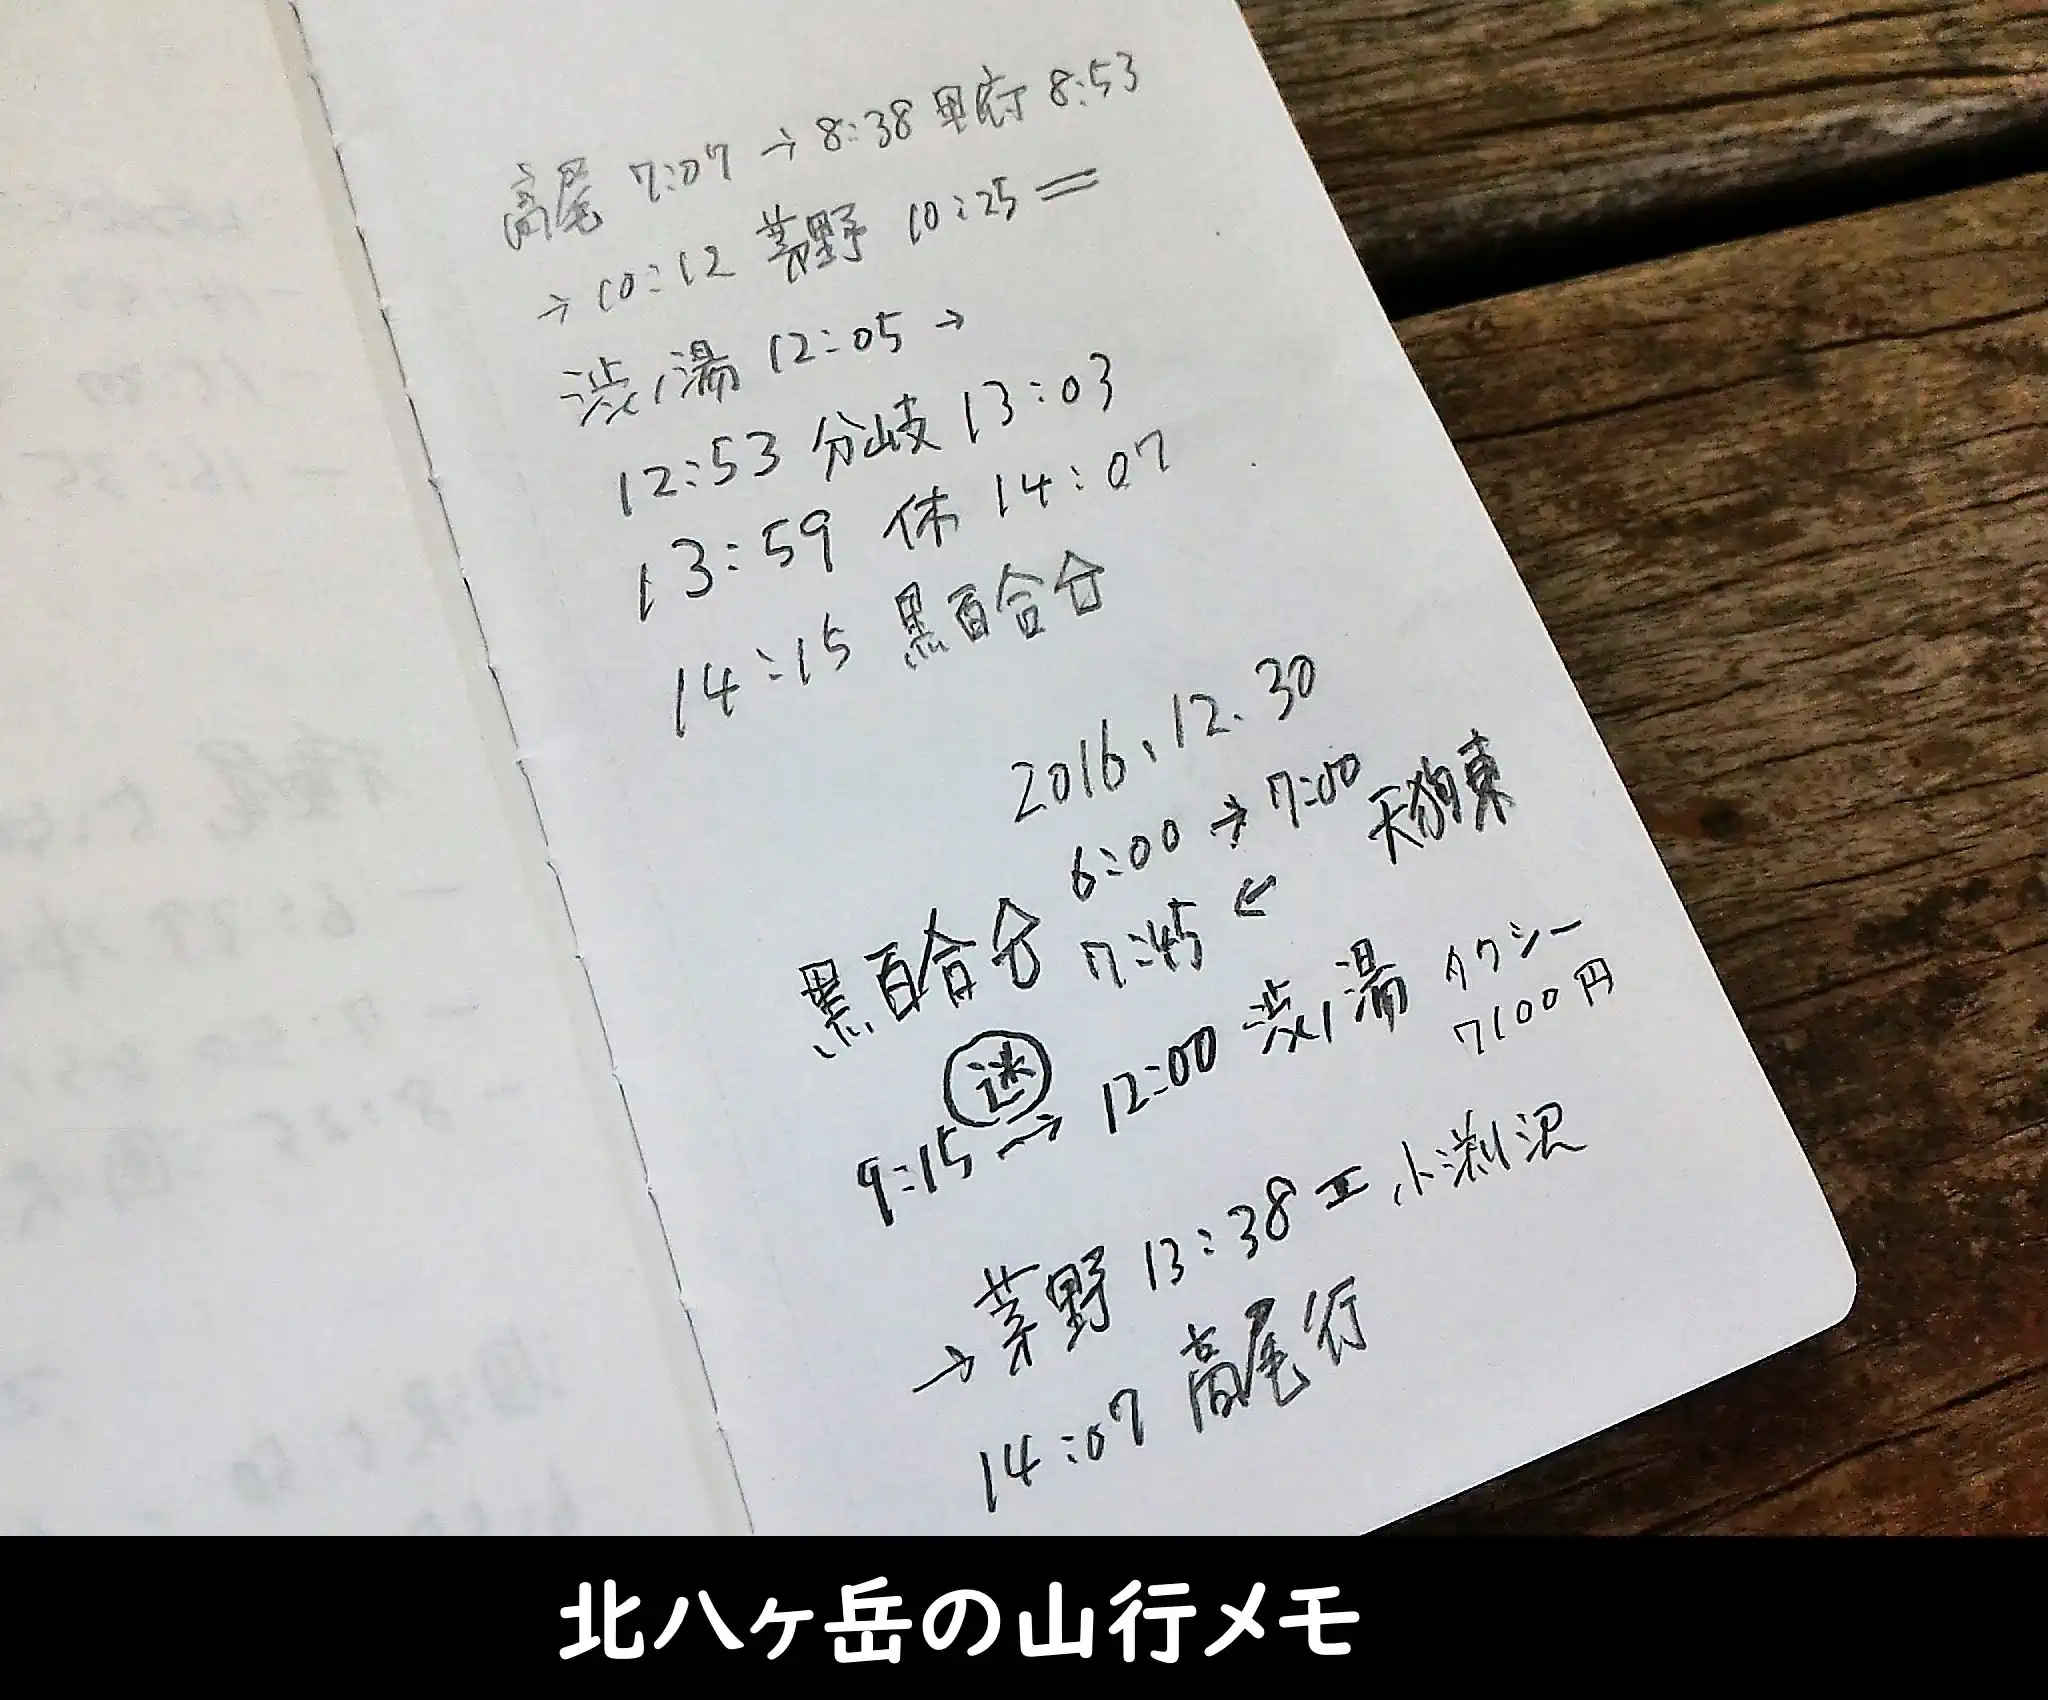 高尾 7:07 → 8:38 甲府 8:53
→ 10:12 茅野 10:25 =
渋ノ湯 12:05 →
12:53 分岐 13:03
13:59 休 14:07
14:15 黒百合
2016.12.30
6:00 → 7:00 天狗東
黒百合 7:45 ←
迷
9:15 → 12:00 渋ノ湯 タクシー
7100円
→ 茅野 13:38 = 小渕沢
14:07 高尾行
北八ヶ岳の山行メモ